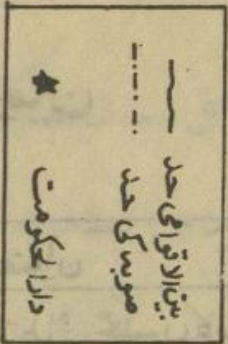 بین الاقوامی حد
صوبہ کی حد
دارالحکومت